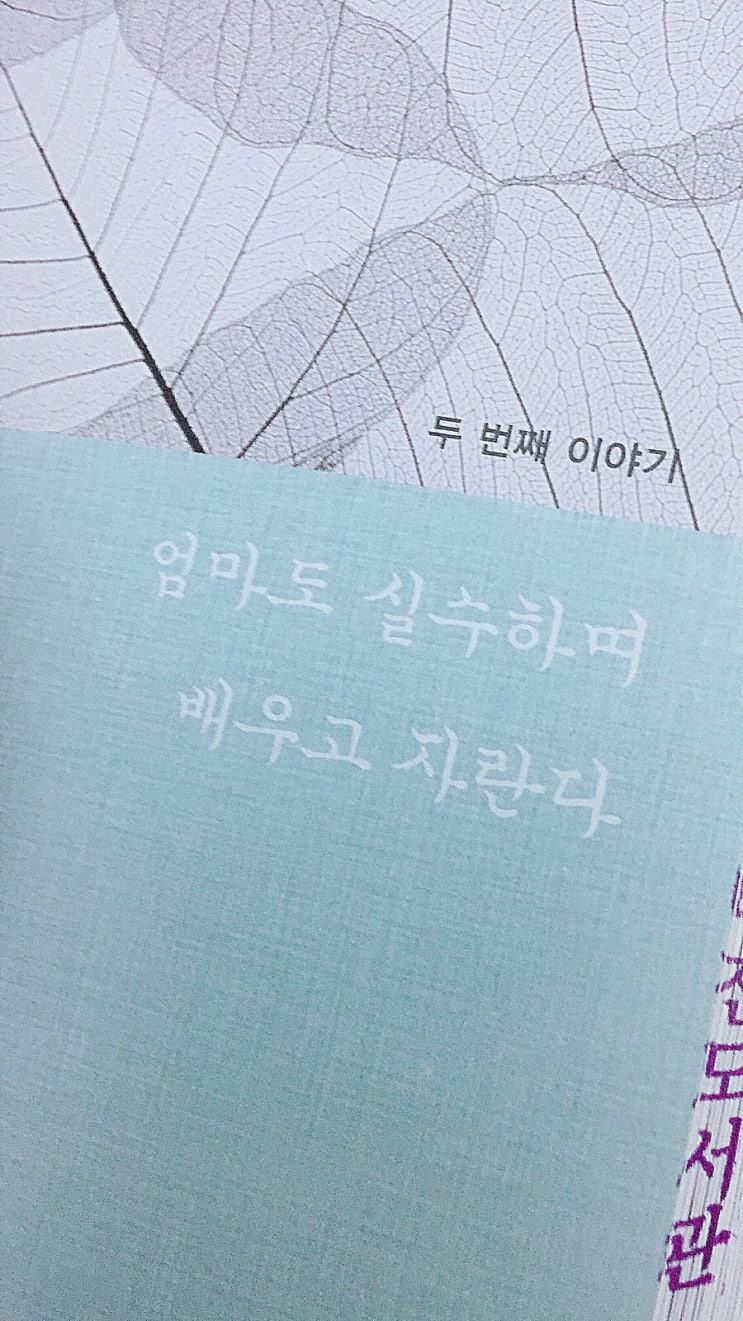 두 번째 이야기
엄마도 실수하며
배우고 자란다
도서관